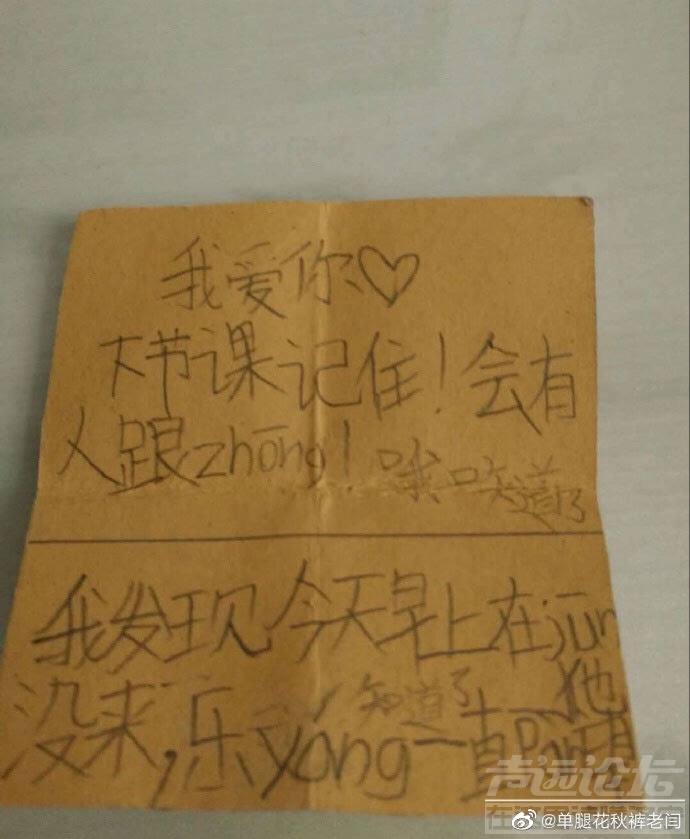 我爱你♡
下节课记住！会有
人跟zhōng！哦，知道了
我发现今天早上在jūn
没来，乐yóng一直
知道了
他
@单腿花秋裤老闫
声远论坛